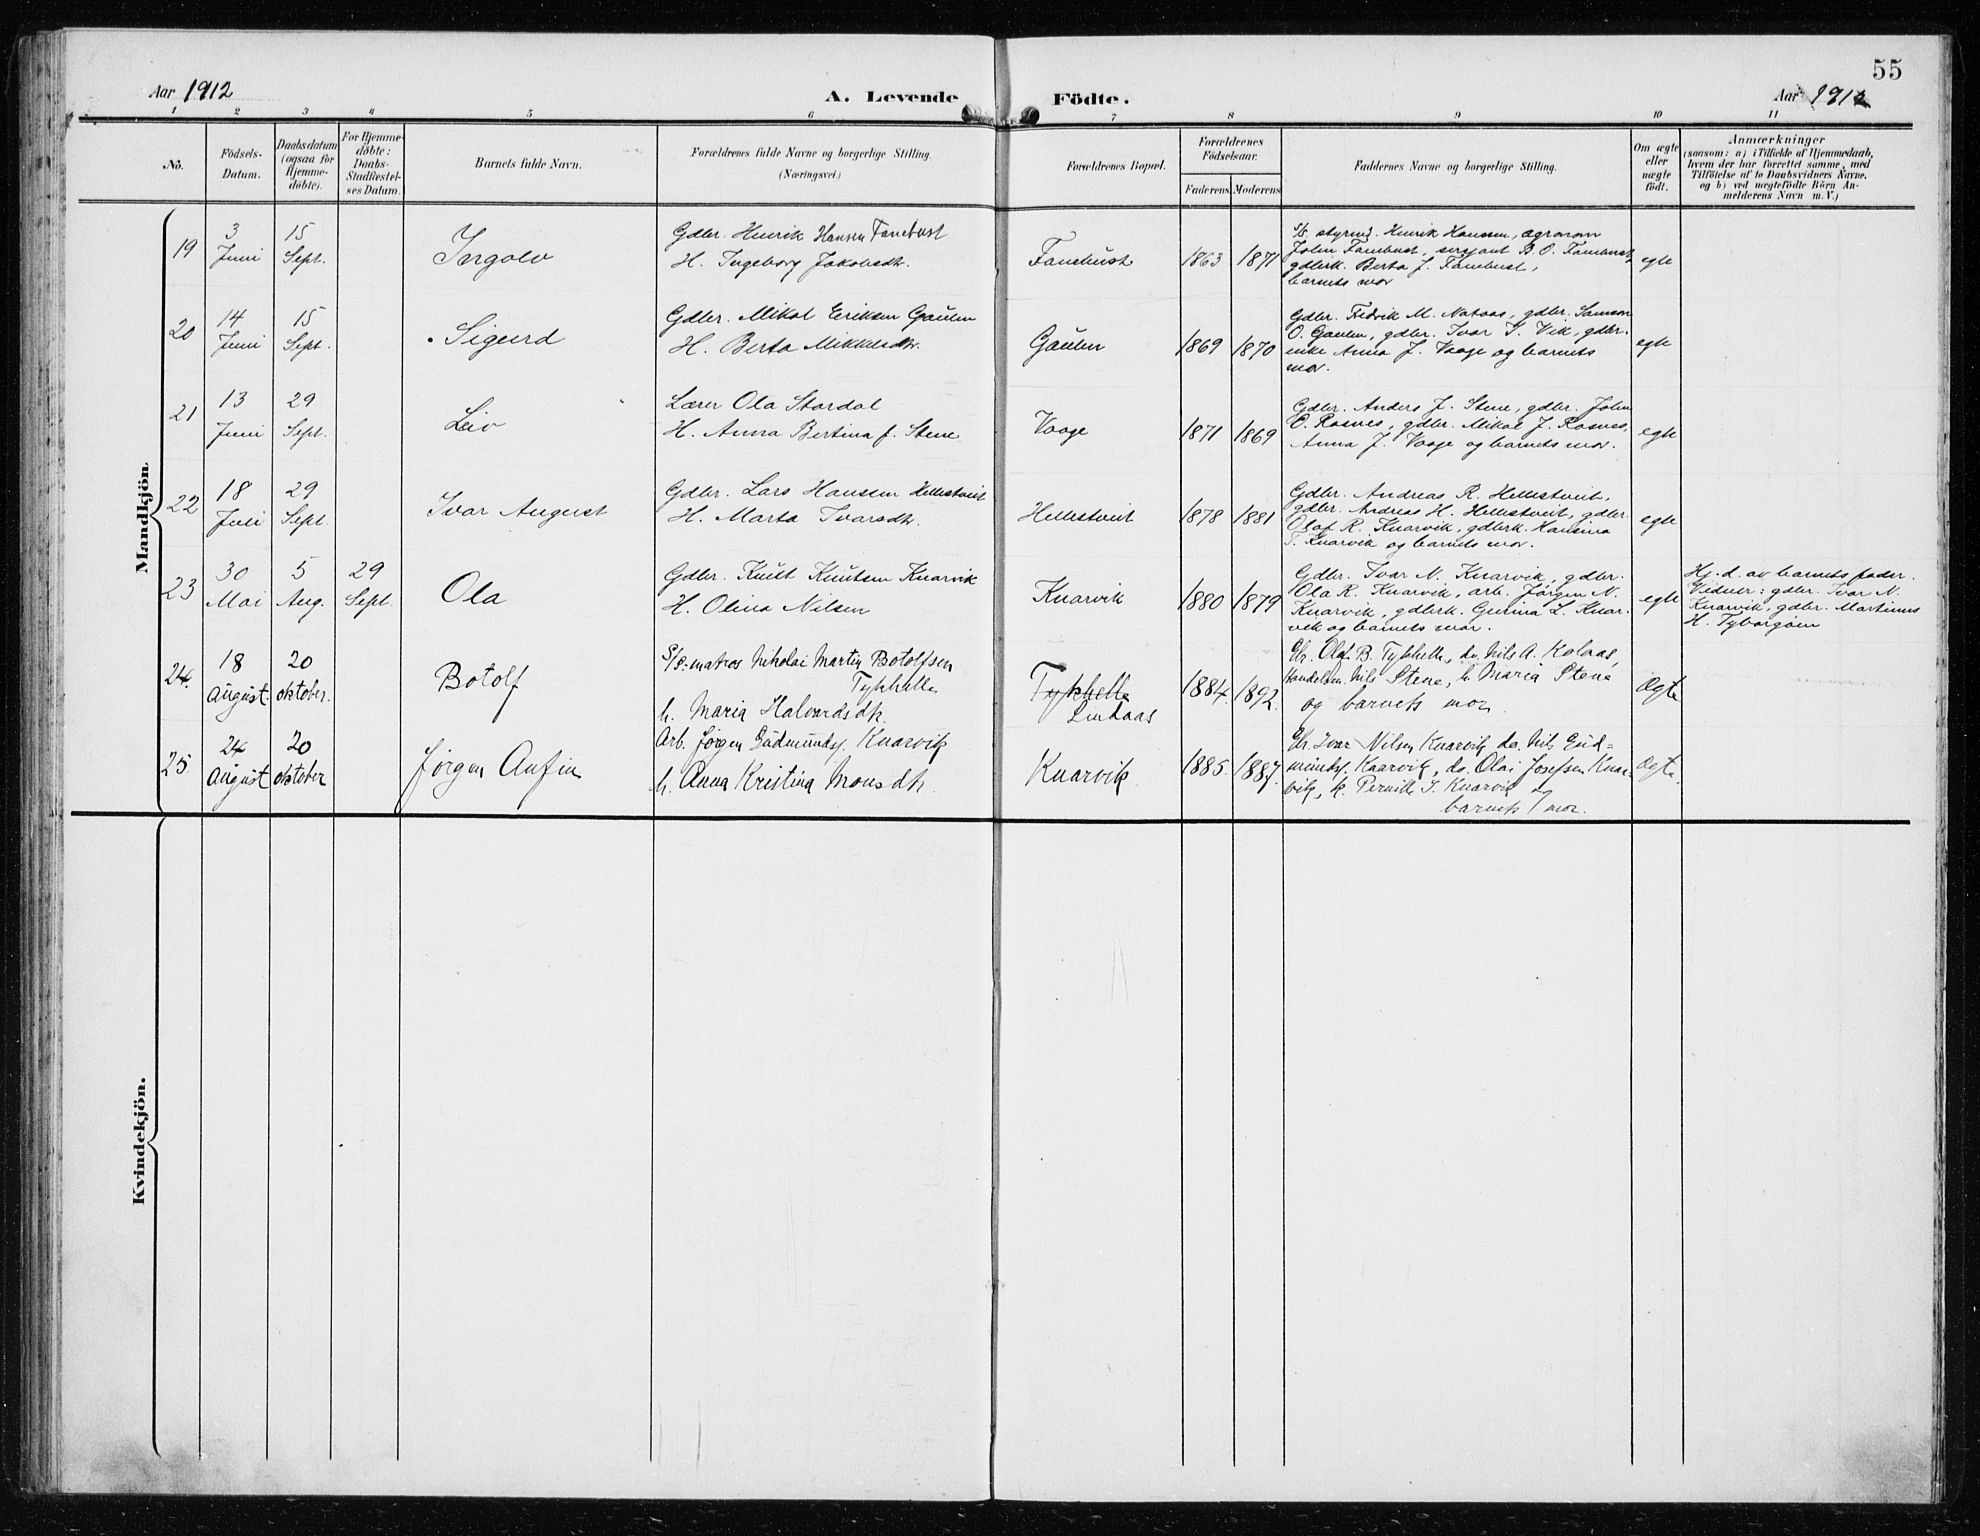 55
Aar 1912
A. Levende Födte.
Aar 1912
1 2 3 4 5 6 7 8 9 10 11
No.
Födsels-
Datum.
Daabsdatum
(ogsaa for
Hjemme-
döbte).
For Hjemme-
döbte:
Daabs-
Stadfæstel-
ses Datum.
Barnets fulde Navn.
Forældrenes fulde Navne og borgerlige Stilling.
(Næringsvei.)
Forældrenes Bopæl.
Forældrenes
Födselsaar.
Faderens. Moderens.
Faddernes Navne og borgerlige Stilling.
Om ægte
eller
uægte
födt.
Anmærkninger
(saasom: a) i Tilfælde af Hjemmedaab,
hvem der har forrettet samme, med
Tilföielse af to Daabsvidners Navne.
og b) ved uægtefödte Börn An-
melderens Navn m. V.)
Mandkjön.
19
3
Juni
15
Sept.
Ingolv
Gdbr. Henrik Hansen Fanebust
H. Ingeborg Jakobsdtr.
Fanebust
1863
1871
S/S styrmd. Henrik Hansen, agronom
John Fanebust, sersjant B. O. Fanebust,
gdbrk. Berta J. Fanebust,
barnets mor
egte
20
14
Juni
15
Sept.
Sigurd
Gdbr. Mikal Eriksen Gaulen
H. Berta Mikkelsdtr.
Gaulen
1869
1870
Gdbr. Fredrik M. Nataas, gdbr. Samson
O. Gaulen, gdbr. Ivar I. Vik, gdbr.
enke Anna J. Vaage og barnets
mor.
egte
21
13
Juni
29
Sept.
Leiv
Lærer Ola Stordal
H. Anna Bertina f. Stene
Vaage
1871
1869
Gdbr. Anders J. Stene, gdbr. John
O. Rosnes, gdbr. Mikal J. Rosnes,
Anna J. Vaage og barnets mor.
egte
22
18
Juli
29
Sept.
Ivar August
Gdbr. Lars Hansen Hellestveit
H. Marta Ivarsdtr.
Hellestveit
1878
1881
Gdbr. Andreas R. Hellestveit,
gdbr. Andreas H. Hellestveit, gdbr.
Olaf R. Knarvik, gdbrk. Hansina
T. Knarvik og barnets mor.
egte
23
30
Mai
5
Aug.
29
Sept.
Ola
Gdbr. Knut Knutsen Knarvik
H. Olina Nilsen
Knarvik
1880
1879
Gdbr. Ivar N. Knarvik, gdbr.
Ola R. Knarvik, arb. Jørgen N.
Knarvik, gdbrk. Gurina L. Knar-
vik og barnets mor.
egte
Hj. d. av barnets fader.
Vidner: gdbr. Ivar N.
Knarvik, gdbr. Martinus
H. Tyborgøen
24.
18
August.
20
oktober.
Botolf
S/S.-matros Nikolai Martin Botolfsen
Tykhelle
h. Maria Halvardsdtr.
Tykhelle
Lindaas
1884.
1892.
Gbr. Olaf B. Tykhelle, do. Nils A. Kolaas,
Handelsm. Nils Stene, h. Maria Stene
og barnets mor.
Ægte
25
24
August
20
oktober
Jørgen Anfin
Arb. Jørgen Gudmunds. Knarvik
h. Anna Kristina Monsdtr.
Knarvik.
1885.
1887.
Gbr. Ivar Nilsen Knarvik do. Nils Gud=
munds. Knarvik, do. Olai Josefsen Knar-
vik, k. Pernille I. Knarvik og
barnets mor.
Ægte.
Kvindekjön.